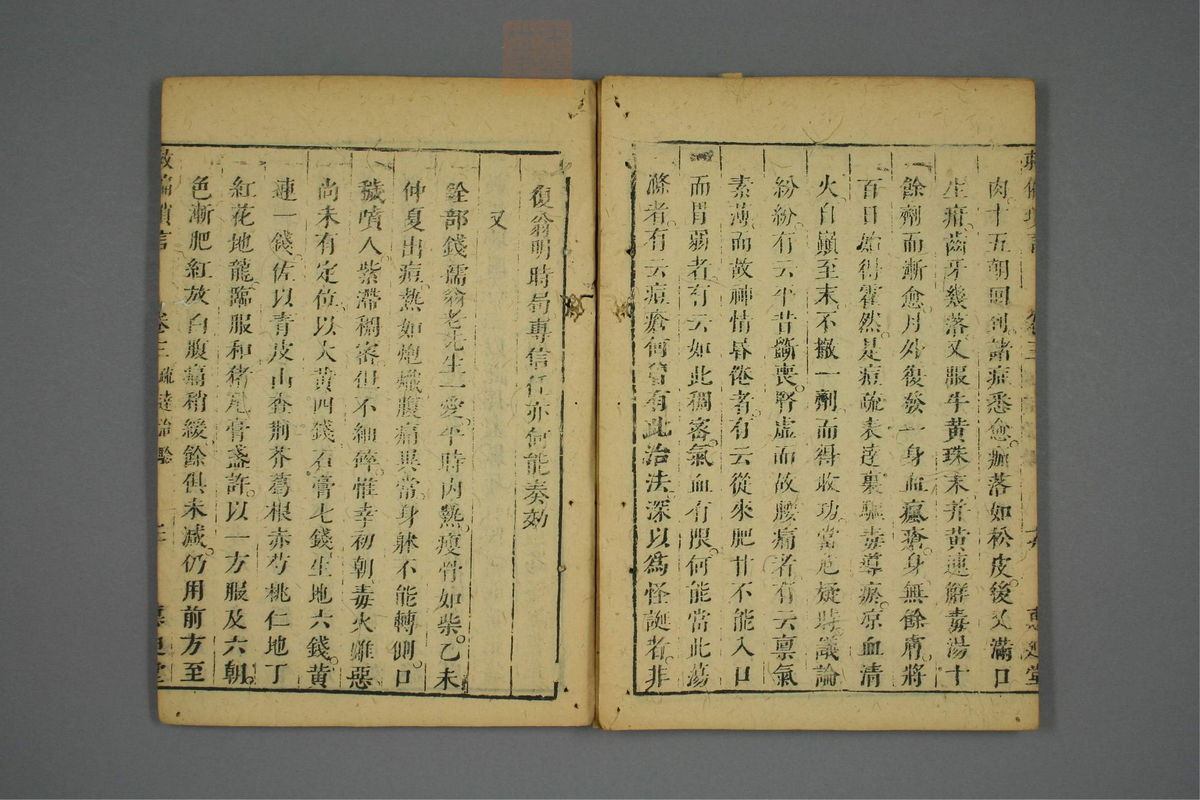 肉十五朝回到諸症悉愈痂落如松皮後又滿口
生疳齒牙幾落又服牛黃珠末幷黃連解毒湯十
餘劑而漸愈月外復發一身血瘋瘡身無餘膚將
百日始得霍然是痘疏表達裏驅毒導瘀凉血清
火自巔至末不撤一劑而得收功當危疑時議論
紛紛有云平昔斵喪腎虛而故腰痛者有云禀氣
素薄而故神情昏倦者有云從來肥甘不能入口
而胃弱者有云如此稠密氣血有限何能當此蕩
滌者有云痘瘡何曾有此治法深以爲怪誕者非
復翁明時局專信任亦何能奏効
又
銓部錢孺翁老先生一愛平時內熱瘦骨如柴乙未
仲夏出痘熱如炮爁腹痛異常身躰不能轉側口
穢噴人紫滯稠密但不細碎惟幸初朝毒火雖惡
尚未有定位以大黃四錢石膏七錢生地六錢黃
連一錢佐以青皮山查荆芥葛根赤芍桃仁地丁
紅花地龍臨服和猪尾膏盞許以一方服及六朝
色漸肥紅放白腹痛稍緩餘俱未减仍用前方至
救偏瑣言
卷三